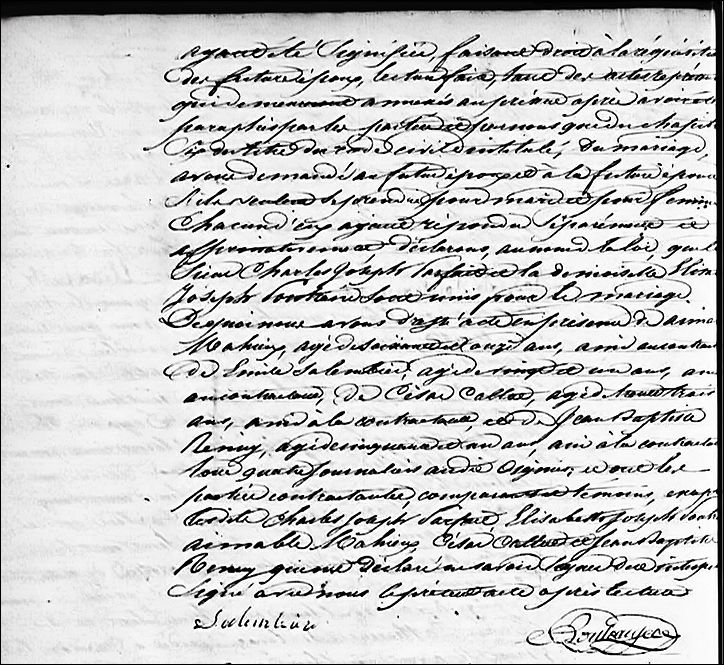 ayant été signifiée, faisant droit à la réquisition
des futurs époux, lecture faite tant des actes représ
qui demeureront annexés au présent après avoir été
paraphés par les parties et par nous que du chapitre
six du titre du code civil intitulé, du mariage,
avons demandé au futur époux et à la future épouse
s'ils veulent se prendre pour mari et pour femme
chacun d'eux ayant répondu séparément et
affirmativement déclarons, au nom de la loi, que le
Sieur Charles Joseph Parfait et la demoiselle
Joseph sont unis par le mariage
De quoi nous avons dressé acte en présence de aima
Mahieu, agé de soixante et onze ans, ami au contract
de Emile Salembier, agé de vingt et un ans, ami
au contractant, de César Callot, agé de trente trois
ans, ami à la contractante, et de Jean Baptiste
Remy, agé de cinquante et un ans, ami à la contractan
tous quatre journaliers audit Oignies, et ont les
parties contractantes comparant et témoins, excep
lesdits Charles Joseph Parfait, Elisabeth Joseph
aimable Mahieu, César Callot et Jean Baptiste
Remy qui ont déclaré ne savoir signer de ce interpel
signé avec nous le présent acte après lecture
Salembier